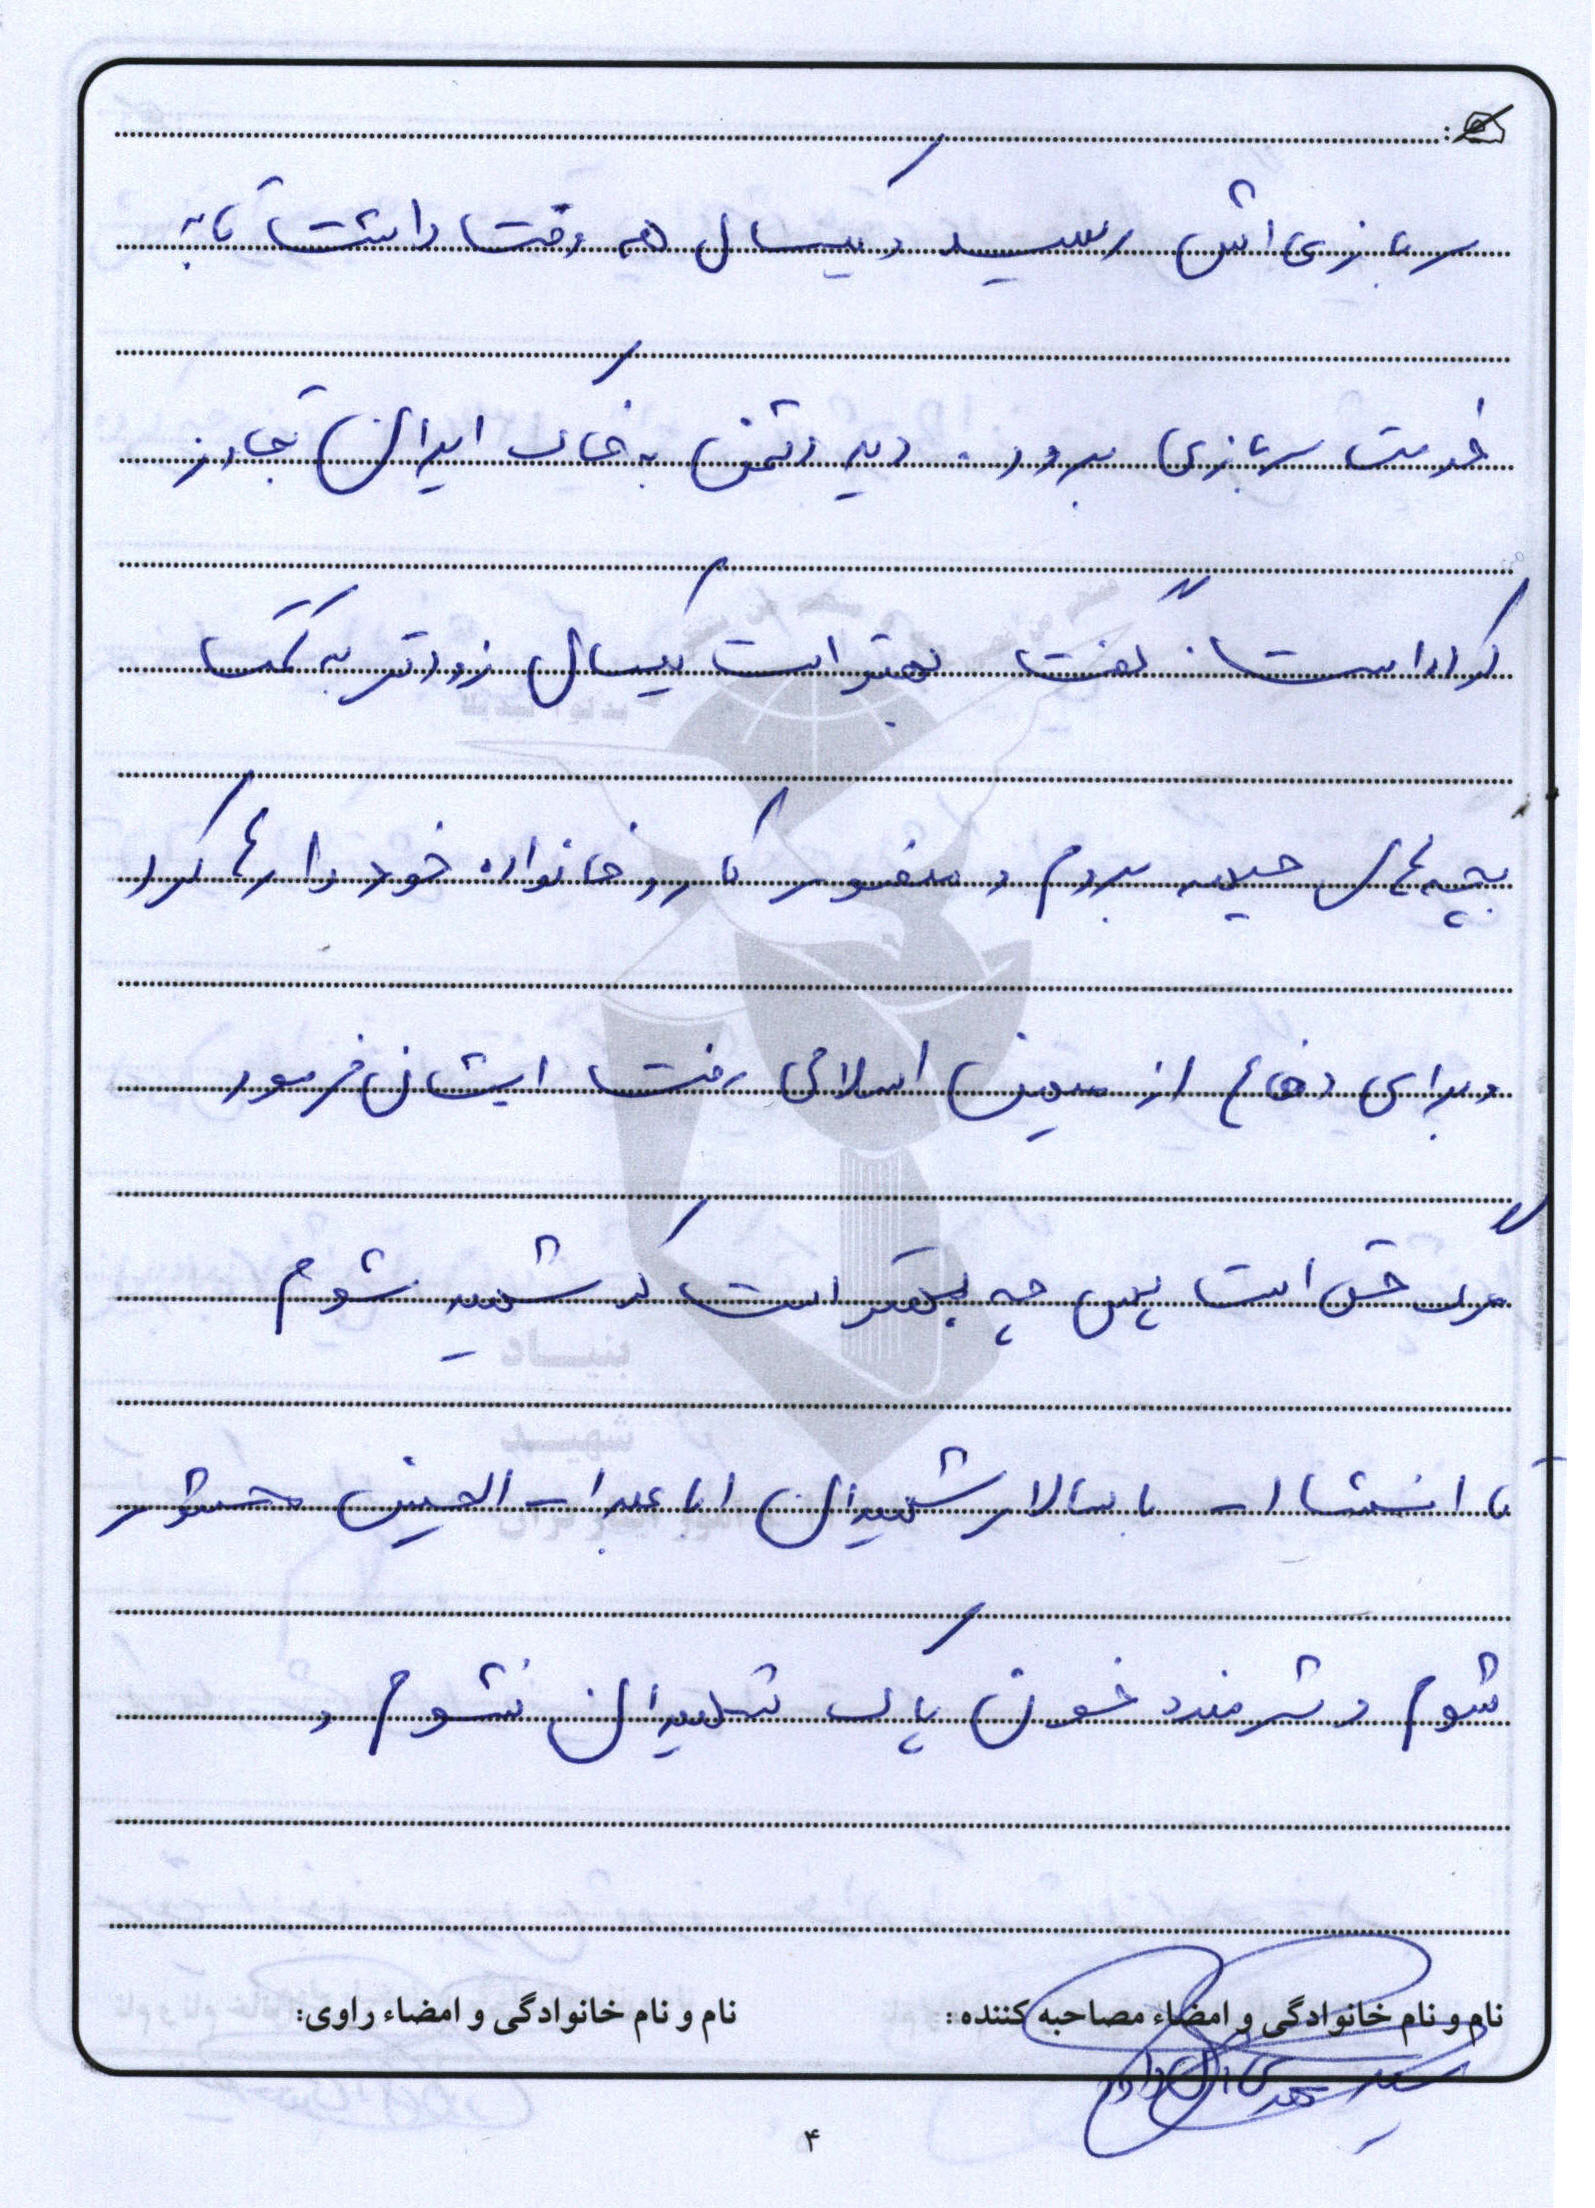 سربازی اش رسید و یکسال هم وقت داشت تا به
خدمت سربازی برود. دید دشمن به خاک ایران تجاوز
کرده است. گفت بهتر است یکسال زودتر به کمک
بچه های جبهه بروم و همینطور کار و خانواده خود را رها کرد
و برای دفاع از میهن اسلامی رفت ایشان فرمود
مرگ حق است پس چه بهتر است که شهید شوم
تا انشاا... با سالار شهیدان ابا عبدا... الحسین محشور
شوم و شرمنده خون پاک شهیدان نشوم و
نام و نام خانوادگی و امضاء مصاحبه کننده:
نام و نام خانوادگی و امضاء راوی:
سید مهدی
۴